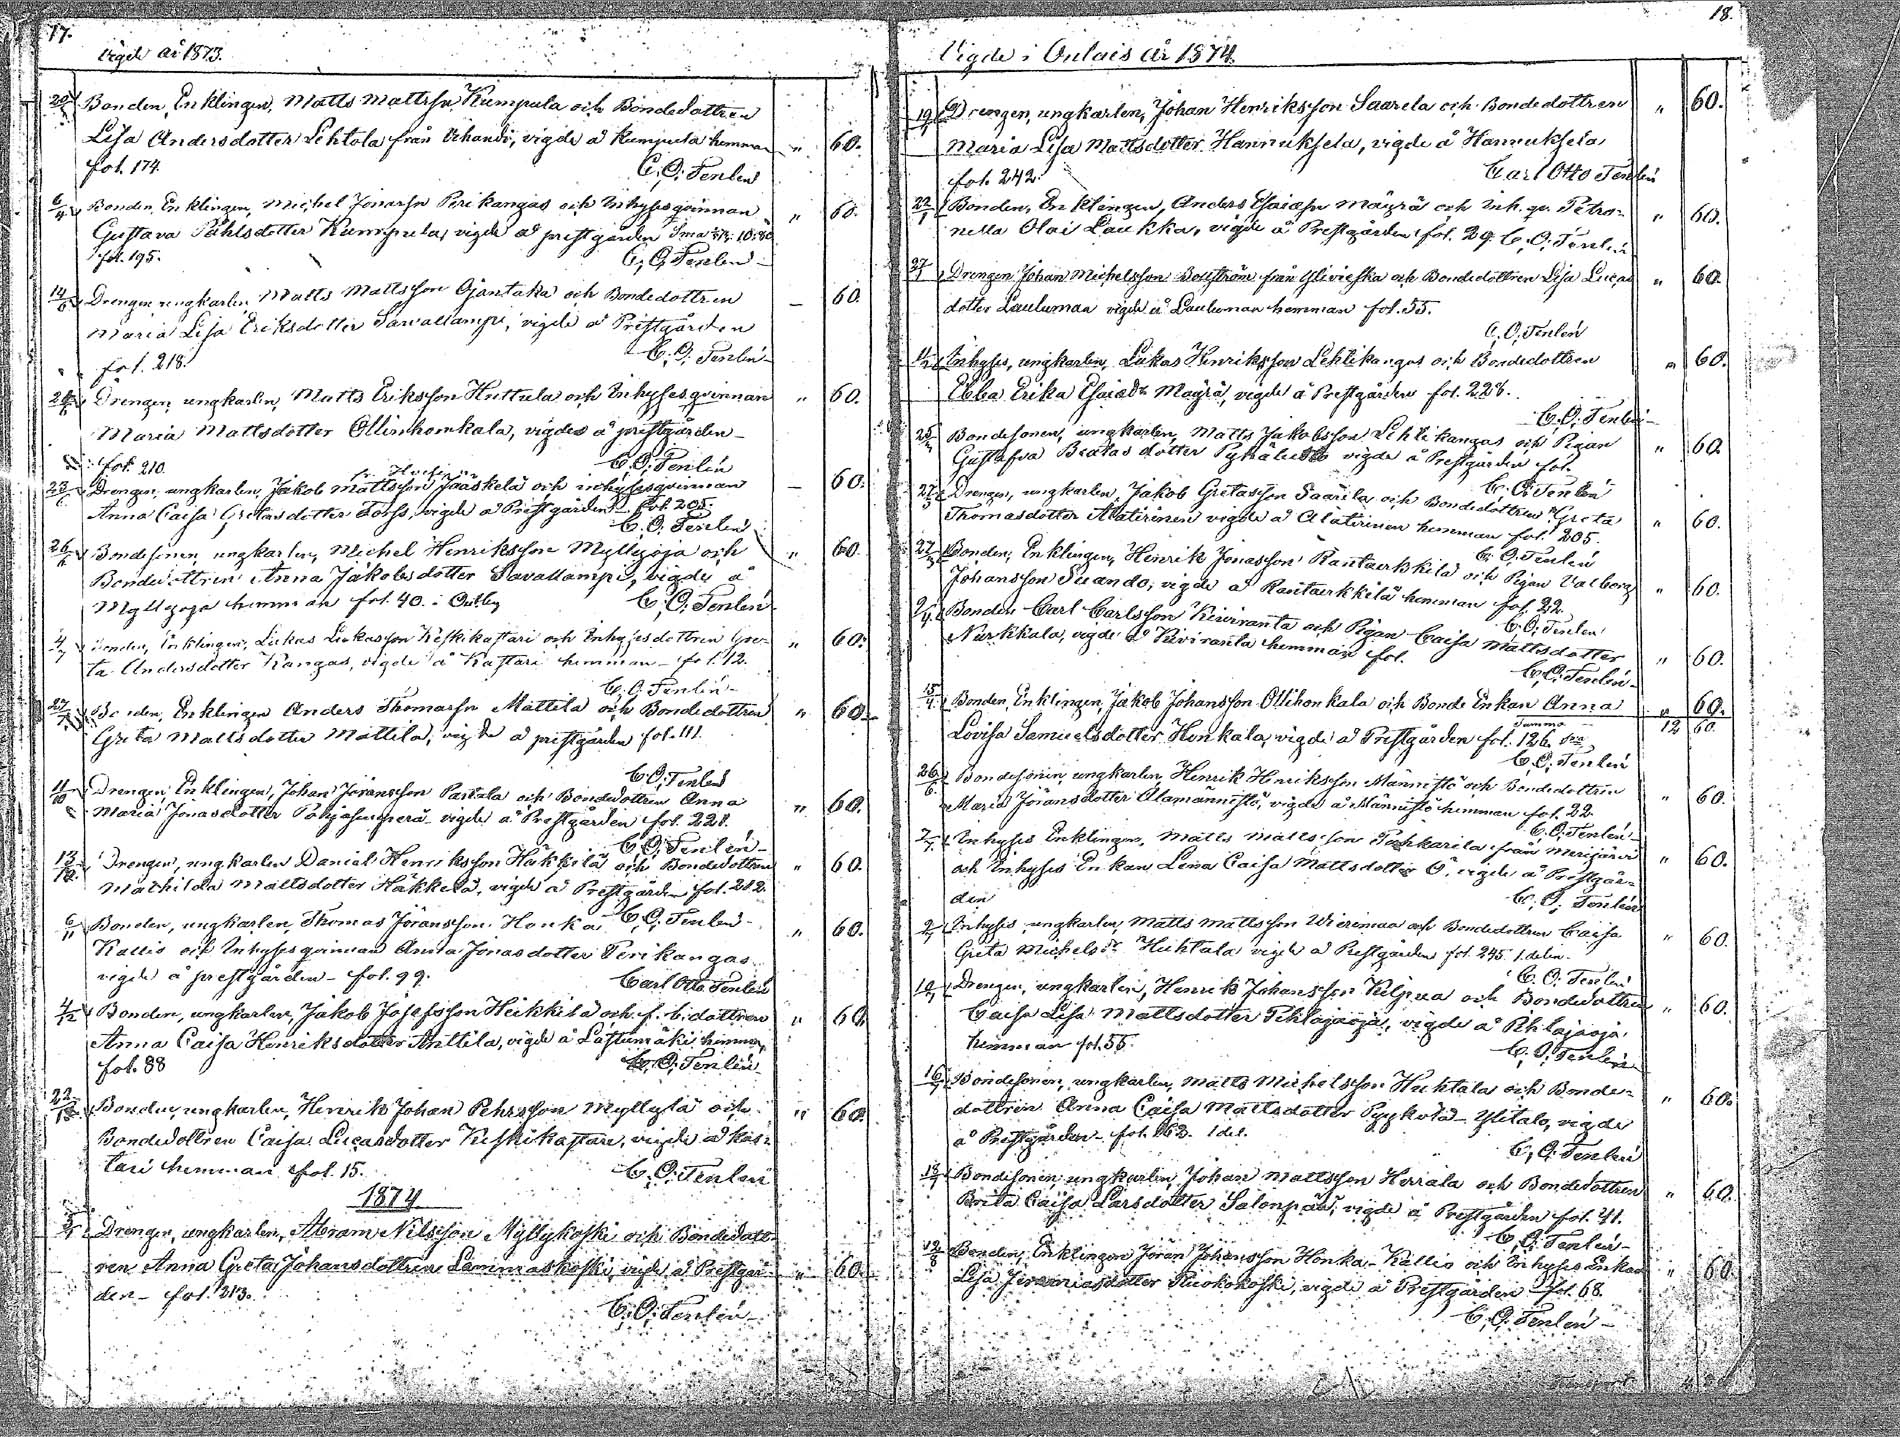 17.
Vigde år 1873.
Bonden, Enklingen, Matts Mattsson Kumpula och Bondedottren " 60.
Lisa Andersdotter Lehtola från Vihandi, vigde å Kumpula hemman
fol. 174. C. O. Tenlén
6/4 Bonden, Enklingen, Michel Jonasson Perikangas och Inhysesqvinnan " 60.
Gustava Påhlsdotter Kumpula, vigde å prestgården
fol. 195. C. O. Tenlén
14/6 Drengen ungkarlen Matts Mattsson Ojantaka och Bondedottren — 60.
Maria Lisa Eriksdotter Sarvallampi, vigde å Prestgården
fol. 218. C. O. Tenlén
Drengen, ungkarlen, Matts Eriksson Huttula och Inhysesqvinnan " 60.
Maria Mattsdotter Ollinhonkala, vigdes å prestgården
fol. 210. C. O. Tenlén
23/6 Drengen, ungkarlen, Jakob Mattsson Jääskelä och inhysesqvinnan — 60.
Anna Caisa Gretasdotter Forss, vigde å Prestgården fol. 205
C. O. Tenlén
26/6 Bondesonen, ungkarlen, Michel Henriksson Myllyoja och " 60.
Bondedottren Anna Jakobsdotter Savallampi, vigde å
Myllyoja hemman fol. 40. C. O. Tenlén
4/7 Bonden, Enklingen, Lukas Lukasson Keskikastari och Inhysesdottren Gre- " 60.
ta Andersdotter Kangas, vigde å Kastari hemman fol. 12.
C. O. Tenlén
27/7 Bonden, Enklingen Anders Thomasson Mattila och Bondedottren " 60.
Greta Mattsdotter Mattila, vigde å prestgården fol. 111.
C. O. Tenlén
11/10 Drengen, Enklingen, Johan Jöransson Parkala och Bondedottren Anna " 60.
Maria Jonasdotter Pohjasenperä vigde å Prestgården fol. 221.
C. O. Tenlén
Drengen, ungkarlen Daniel Henriksson Häkkilä och Bondedottren " 60.
Mathilda Mattsdotter Häkkilä, vigde å Prestgården fol. 212.
C. O. Tenlén
6/11 Bonden, ungkarlen, Thomas Jöransson Honka " 60.
Kallio och Inhysesqvinnan Anna Jonasdotter Perikangas
vigde å prestgården fol. 99. Carl Otto Tenlén
4/12 Bonden, ungkarlen, Jakob Josefsson Heikkilä och f. b. dottren " 60.
Anna Caisa Henriksdotter Anttila, vigde å Lastumäki hemman,
fol. 88 C. O. Tenlén
22/12 Bonden, ungkarlen, Henrik Johan Pehrsson Myllylä och " 60.
Bondedottren Caisa Lucasdotter Keskikastari, vigde å Kas-
tari hemman fol. 15. C. O. Tenlén
1874
Drengen, ungkarlen, Abram Nilsson Myllykoski och Bondedott-
ren Anna Greta Johansdottren Lammaskoski, vigde å Prestgår- " 60.
den fol. 213.
C. O. Tenlén
18.
Vigde i Oulais år 1874
19/1 Drengen, ungkarlen, Johan Henriksson Saarela och Bondedottren " 60.
Maria Lisa Mattsdotter Hannuksela, vigde å Hannuksela
fol. 242. Carl Otto Tenlén
22/1 Bonden, Enklingen, Anders Esaiasson Mäyrä och Inh. qv. Petro- " 60.
nella Olai Laukka, vigde å Prestgården fol. 29. C. O. Tenlén
27/1 Drengen Johan Michelsson Boström från Ylivieska och Bondedottren Lisa Lucas " 60.
dotter Lauluman vigde å Lauluman hemman fol. 55.
C. O. Tenlén
Inhyses, ungkarlen, Lukas Henriksson Lehtikangas och Bondedottren " 60.
Ebba Erika Esaiaedr Mäyrä, vigde å Prestgården fol. 228.
C. O. Tenlén
Bondesonen, ungkarlen, Matts Jakobsson Lehtikangas och Pigan " 60.
Gustafva Beatasdotter Pyhäluoto vigde å Prestgården fol.
C. O. Tenlén
Drengen, ungkarlen, Jakob Gretasson Saarela och Bondedottren Greta " 60.
Thomasdotter Alatirinen vigde å Alatirinen hemman fol. 205.
C. O. Tenlén
Bonden, Enklingen, Henrik Jonasson Rantaerkkilä och Pigan Valborg " 60.
Johansson Suando, vigde å Rantaerkkilä hemman fol. 22.
C. O. Tenlén
Bonden Carl Carlsson Kiviranta och Pigan Caisa Mattsdotter " 60.
Nurkkala, vigde å Kiviranta hemman fol.
C. O. Tenlén
15/4 Bonden, Enklingen, Jakob Johansson Ollihonkala och Bonde Enkan Anna " 60.
Lovisa Samuelsdotter Honkala, vigde å Prestgården fol. 126. Summa 12 60.
C. O. Tenlén
26/6 Bondesonen, ungkarlen, Henrik Henriksson Männistö och Bondedottren " 60.
Maria Jöransdotter Alamännistö, vigde å Männistö hemman fol. 22.
C. O. Tenlén
Inhyses Enklingen, Matts Mattsson Pahkarila från Merijärvi " 60.
och Inhyses Enkan Lena Caisa Mattsdotter Ö, vigde å Prestgår-
den C. O. Tenlén
Inhyses ungkarlen, Matts Mattsson Wierimaa och Bondedottren Caisa " 60.
Greta Michelsdr Huhtala vigde å Prestgården fol. 245. 1 delen.
C. O. Tenlén
Drengen, ungkarlen, Henrik Johansson Kilpua och Bondedottren " 60.
Caisa Lisa Mattsdotter Pihlajaoja, vigde å Pihlajaoja
hemman fol. 55. C. O. Tenlén
Bondesonen, ungkarlen, Matts Michelsson Huhtala och Bonde-
dottren Anna Caisa Mattsdotter Pyykola Ylitalo, vigde " 60.
å Prestgården fol. 163. 1 del.
C. O. Tenlén
Bondesonen ungkarlen, Johan Mattsson Herrala och Bondedottren " 60.
Brita Caisa Larsdotter Salonpää, vigde å Prestgården fol. 41.
C. O. Tenlén
Bonden, Enklingen Jöran Johansson Honka-Kallio och Inhyses Enkan " 60.
Lisa Jeremiasdotter Kuokokoski, vigde å Prestgården fol. 68.
C. O. Tenlén